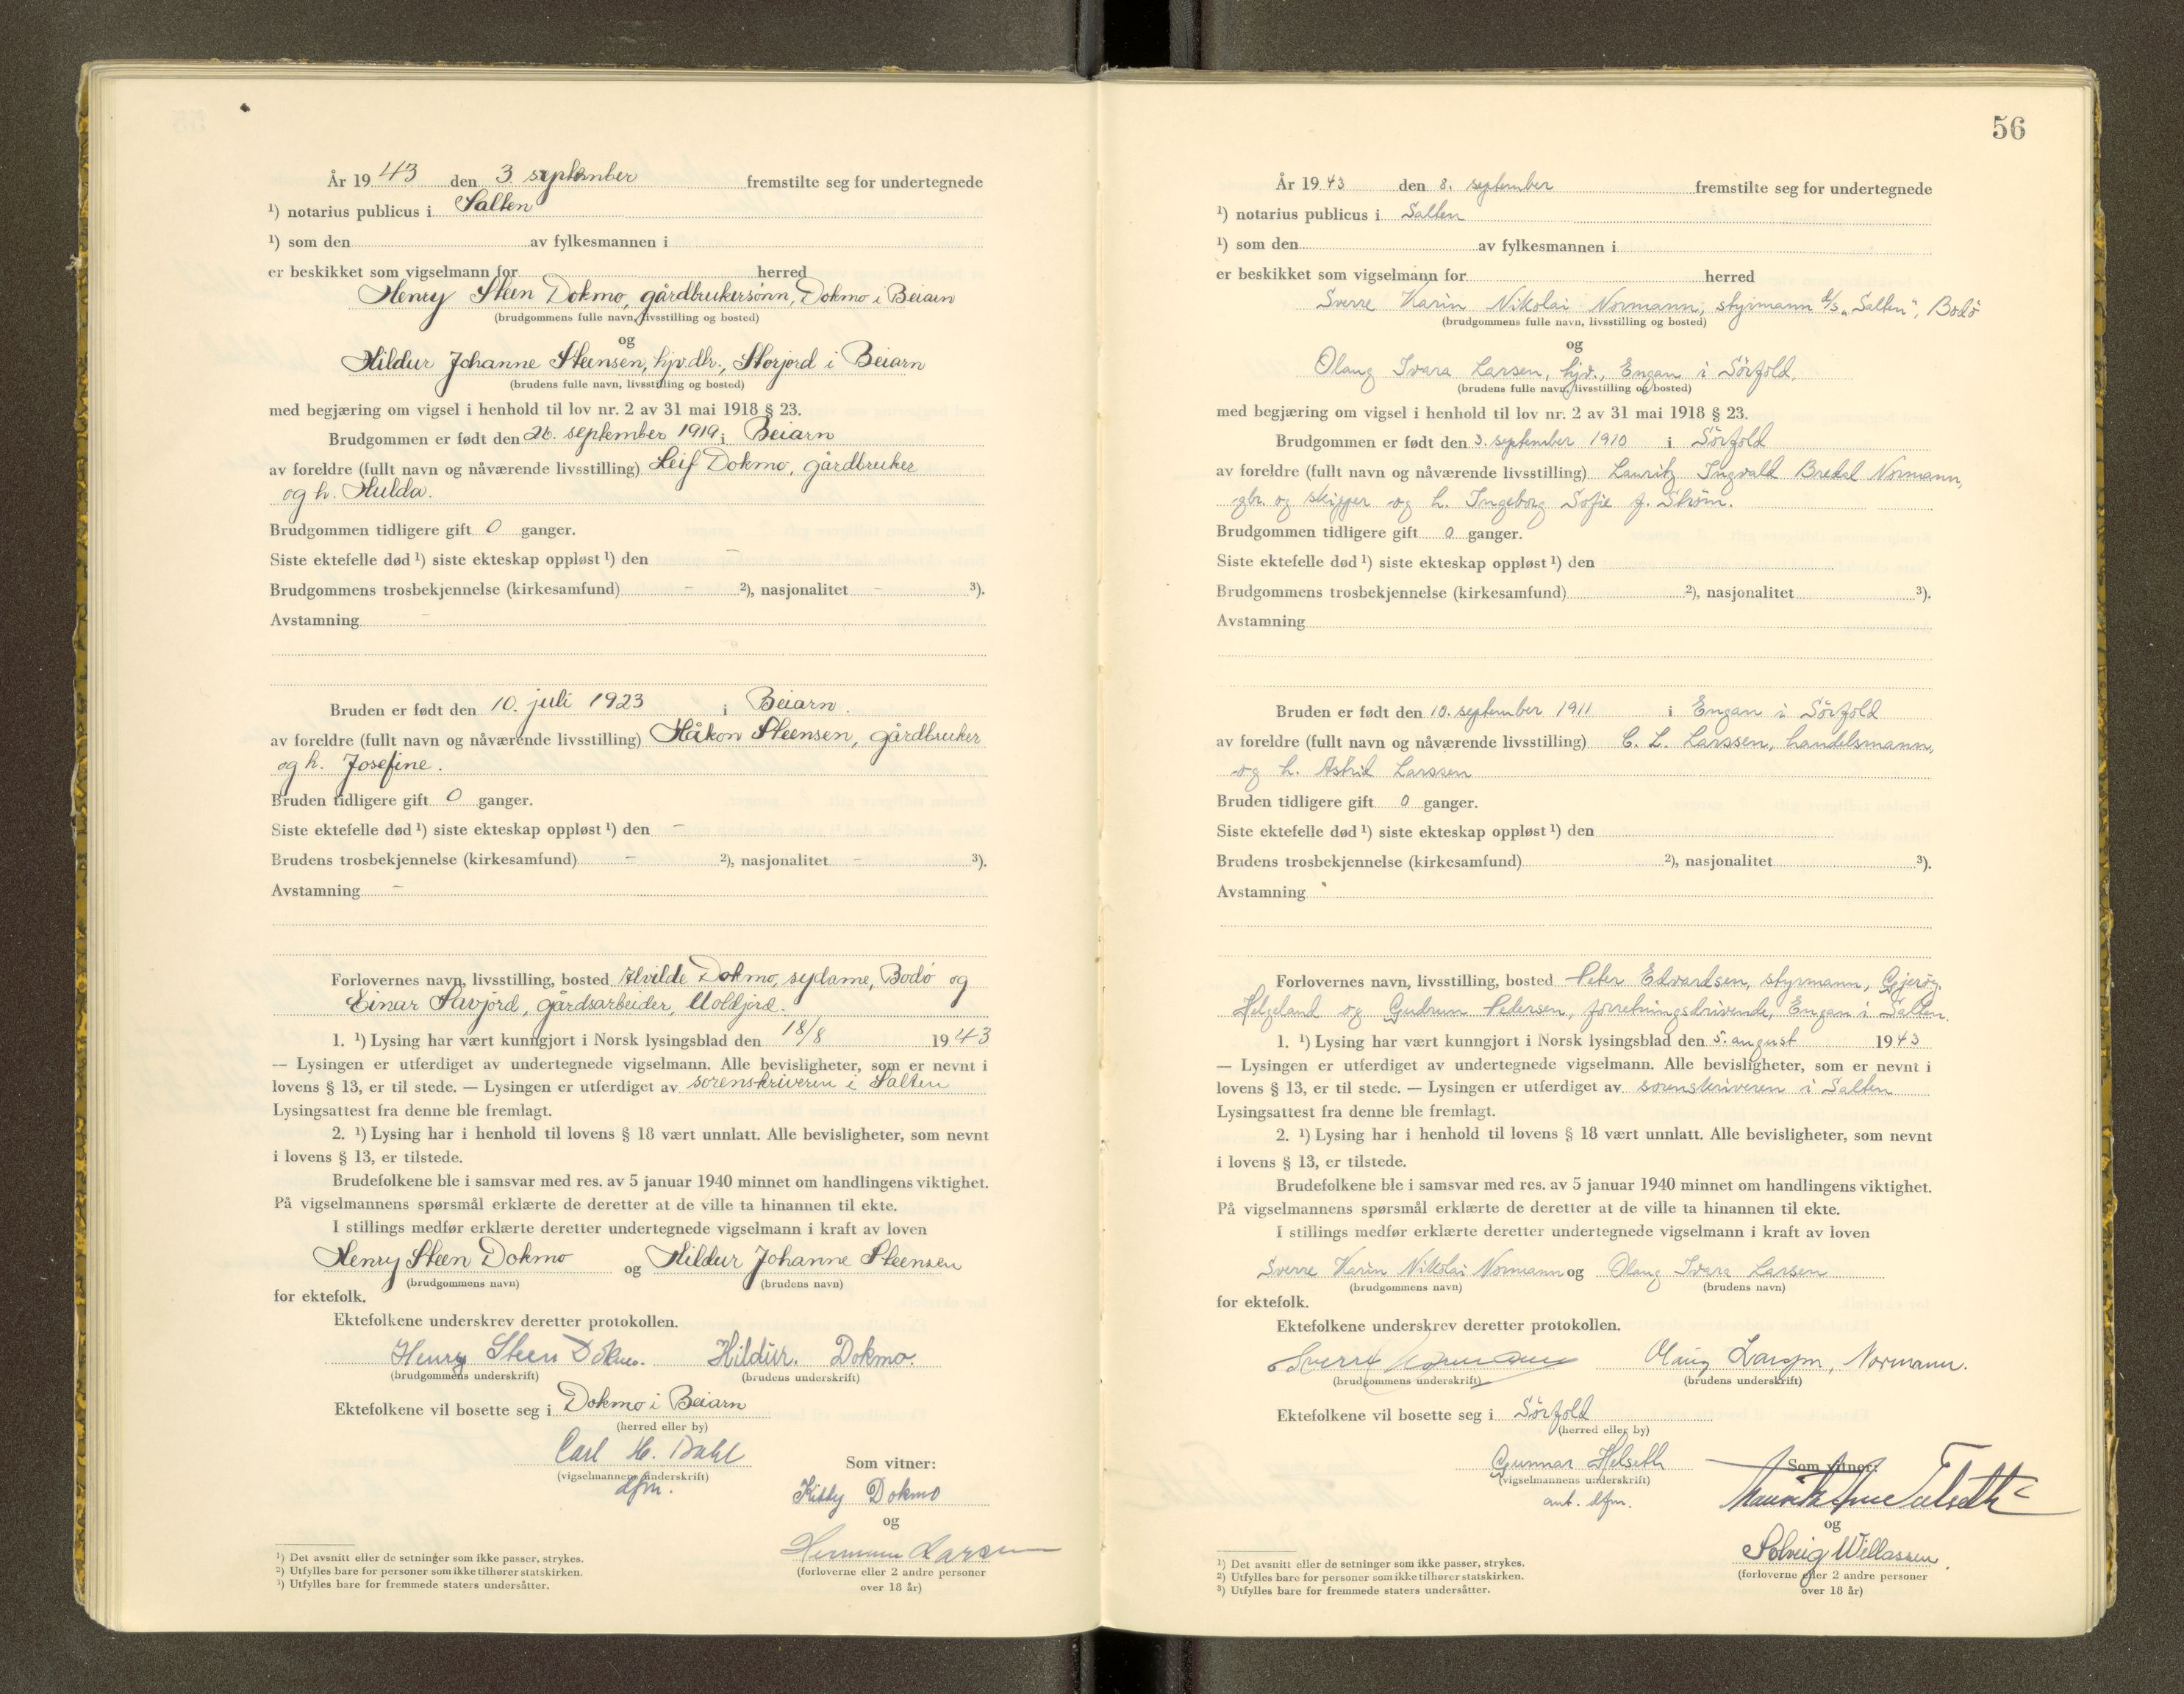 År 1943 den 3. september fremstilte seg for undertegnede
¹) notarius publicus i Salten
¹) som den av fylkesmannen i
er beskikket som vigselmann for herred
Henry Steen Dokmo, gårdbrukersønn, Dokmo i Beiarn
(brudgommens fulle navn, livsstilling og bosted)
og
Hildur Johanne Steensen, hjv.dtr., Storjord i Beiarn
(brudens fulle navn, livsstilling og bosted)
med begjæring om vigsel i henhold til lov nr. 2 av 31 mai 1918 § 23.
Brudgommen er født den 26. september 1919 i Beiarn
av foreldre (fullt navn og nåværende livsstilling) Leif Dokmo, gårdbruker
og h. Hulda.
Brudgommen tidligere gift 0 ganger.
Siste ektefelle død ¹) siste ekteskap oppløst ¹) den –
Brudgommens trosbekjennelse (kirkesamfund) – ²), nasjonalitet – ³).
Avstamning –
Bruden er født den 10. juli 1923 i Beiarn.
av foreldre (fullt navn og nåværende livsstilling) Håkon Steensen, gårdbruker
og h. Josefine.
Bruden tidligere gift 0 ganger.
Siste ektefelle død ¹) siste ekteskap oppløst ¹) den –
Brudens trosbekjennelse (kirkesamfund) – ²), nasjonalitet – ³).
Avstamning –
Forlovernes navn, livsstilling, bosted Alvilde Dokmo, sydame, Bodø og
Einar Savjord, gårdsarbeider, Moldjord.
1. ¹) Lysing har vært kunngjort i Norsk lysingsblad den 18/8 1943
— Lysingen er utferdiget av undertegnede vigselmann. Alle bevisligheter, som er nevnt i
lovens § 13, er til stede. — Lysingen er utferdiget av sorenskriveren i Salten
Lysingsattest fra denne ble fremlagt.
2. ¹) Lysing har i henhold til lovens § 18 vært unnlatt. Alle bevisligheter, som nevnt
i lovens § 13, er tilstede.
Brudefolkene ble i samsvar med res. av 5 januar 1940 minnet om handlingens viktighet.
På vigselmannens spørsmål erklærte de deretter at de ville ta hinannen til ekte.
I stillings medfør erklærte deretter undertegnede vigselmann i kraft av loven
Henry Steen Dokmo og Hildur Johanne Steensen
(brudgommens navn) (brudens navn)
for ektefolk.
Ektefolkene underskrev deretter protokollen.
Henry Steen Dokmo. Hildur. Dokmo.
(brudgommens underskrift) (brudens underskrift)
Ektefolkene vil bosette seg i Dokmo i Beiarn
(herred eller by)
Carl H. Dahl
(vigselmannens underskrift)
dfm.
Som vitner:
Kitty Dokmo
og
Hermann Larsen
(forloverne eller 2 andre personer
over 18 år)
¹) Det avsnitt eller de setninger som ikke passer, strykes.
²) Utfylles bare for personer som ikke tilhører statskirken.
³) Utfylles bare for fremmede staters undersåtter.
56
År 1943 den 8. september fremstilte seg for undertegnede
¹) notarius publicus i Salten
¹) som den av fylkesmannen i
er beskikket som vigselmann for herred
Sverre Karin Nikolai Normann, styrmann d/s „Salten", Bodø
(brudgommens fulle navn, livsstilling og bosted)
og
Olaug Ivara Larsen, hjv., Engan i Sørfold.
(brudens fulle navn, livsstilling og bosted)
med begjæring om vigsel i henhold til lov nr. 2 av 31 mai 1918 § 23.
Brudgommen er født den 3. september 1910 i Sørfold
av foreldre (fullt navn og nåværende livsstilling) Lauritz Ingvald Bredal Normann,
gbr. og skipper og h. Ingeborg Sofie f. Strøm.
Brudgommen tidligere gift 0 ganger.
Siste ektefelle død ¹) siste ekteskap oppløst ¹) den
Brudgommens trosbekjennelse (kirkesamfund) ²), nasjonalitet ³).
Avstamning
Bruden er født den 10. september 1911 i Engan i Sørfold
av foreldre (fullt navn og nåværende livsstilling) C. L. Larssen, handelsmann,
og h. Astrid Larssen
Bruden tidligere gift 0 ganger.
Siste ektefelle død ¹) siste ekteskap oppløst ¹) den
Brudens trosbekjennelse (kirkesamfund) ²), nasjonalitet ³).
Avstamning
Forlovernes navn, livsstilling, bosted Peter Edvardsen, styrmann, Gjerøy,
Helgeland og Gudrun Pedersen, forretningsdrivende, Engan i Salten.
1. ¹) Lysing har vært kunngjort i Norsk lysingsblad den 5. august 1943
— Lysingen er utferdiget av undertegnede vigselmann. Alle bevisligheter, som er nevnt i
lovens § 13, er til stede. — Lysingen er utferdiget av sorenskriveren i Salten
Lysingsattest fra denne ble fremlagt.
2. ¹) Lysing har i henhold til lovens § 18 vært unnlatt. Alle bevisligheter, som nevnt
i lovens § 13, er tilstede.
Brudefolkene ble i samsvar med res. av 5 januar 1940 minnet om handlingens viktighet.
På vigselmannens spørsmål erklærte de deretter at de ville ta hinannen til ekte.
I stillings medfør erklærte deretter undertegnede vigselmann i kraft av loven
Sverre Karin Nikolai Normann og Olaug Ivara Larsen
(brudgommens navn) (brudens navn)
for ektefolk.
Ektefolkene underskrev deretter protokollen.
Sverre Normann Olaug Larsen, Normann.
(brudgommens underskrift) (brudens underskrift)
Ektefolkene vil bosette seg i Sørfold
(herred eller by)
Gunnar Helseth
(vigselmannens underskrift)
ant. dfm.
Som vitner:
og
Solveig Willassen.
(forloverne eller 2 andre personer
over 18 år)
¹) Det avsnitt eller de setninger som ikke passer, strykes.
²) Utfylles bare for personer som ikke tilhører statskirken.
³) Utfylles bare for fremmede staters undersåtter.